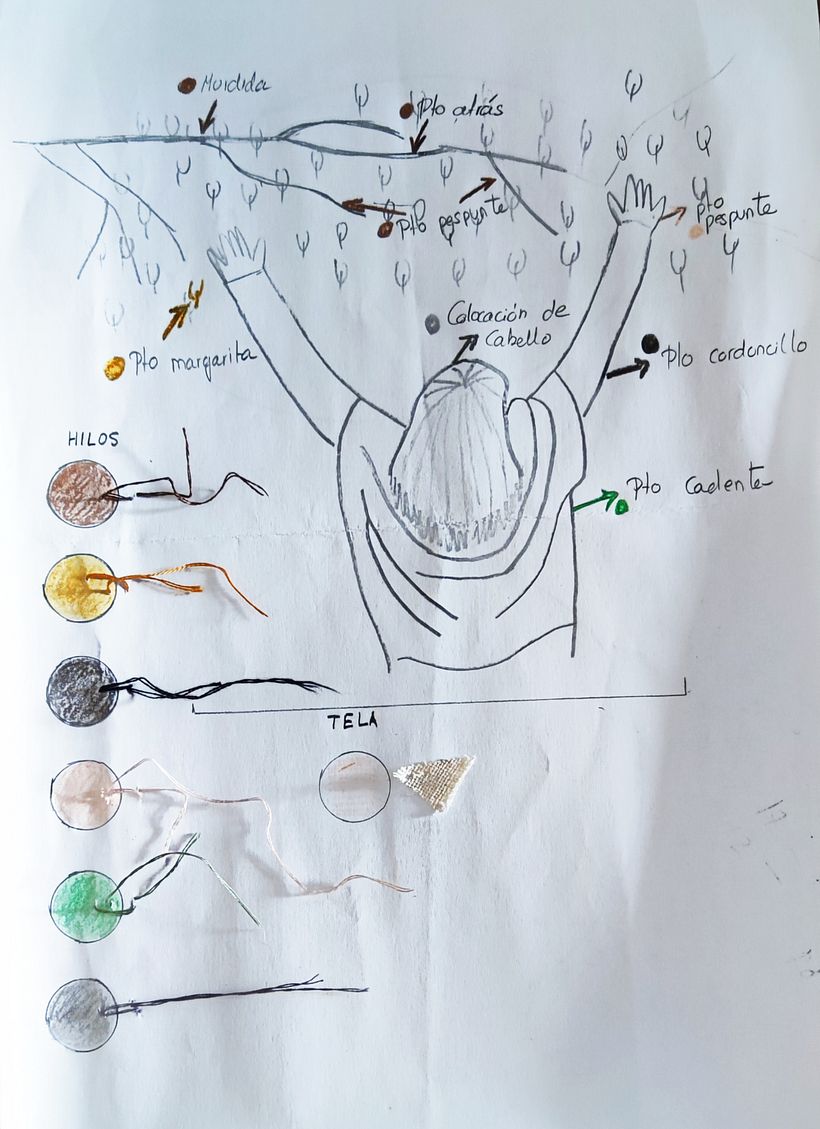 Mordida
Pto atrás
Pto pespunte
Pto
pespunte
Colocación de
Cabello
Pto margarita
Pto cordoncillo
HILOS
Pto Cadenta
TELA